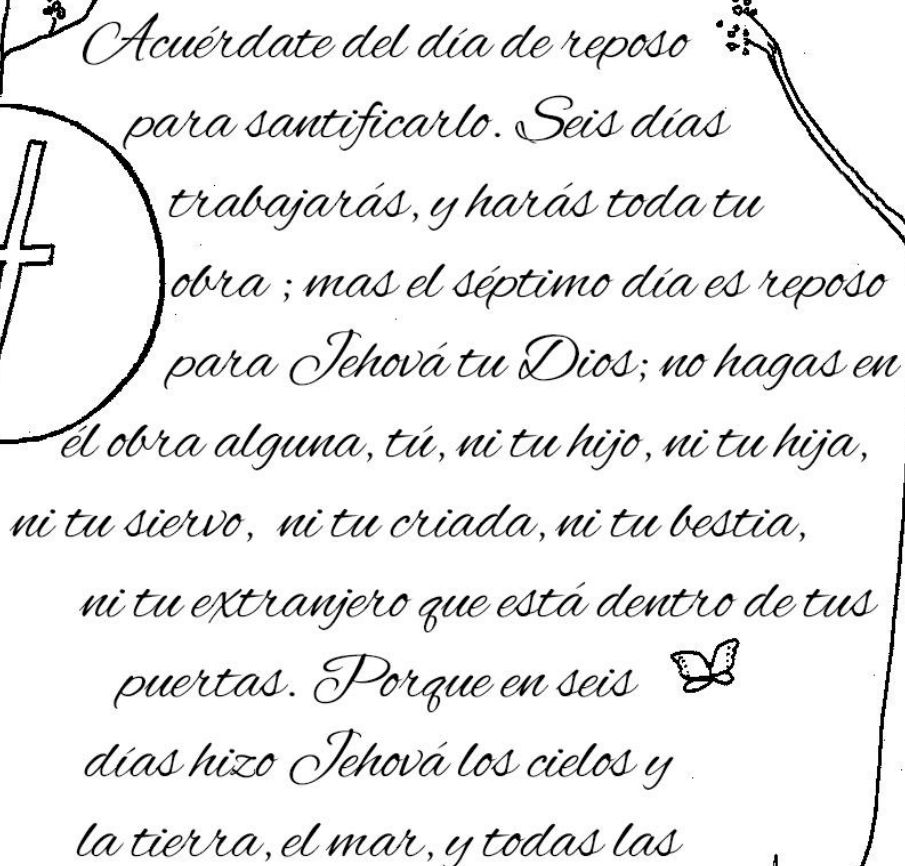 Acuérdate del día de reposo
para santificarlo. Seis días
trabajarás, y harás toda tu
obra ; mas el séptimo día es reposo
para Jehová tu Dios; no hagas en
él obra alguna, tú, ni tu hijo, ni tu hija,
ni tu siervo, ni tu criada, ni tu bestia,
ni tu extranjero que está dentro de tus
puertas. Porque en seis
días hizo Jehová los cielos y
la tierra, el mar, y todas las